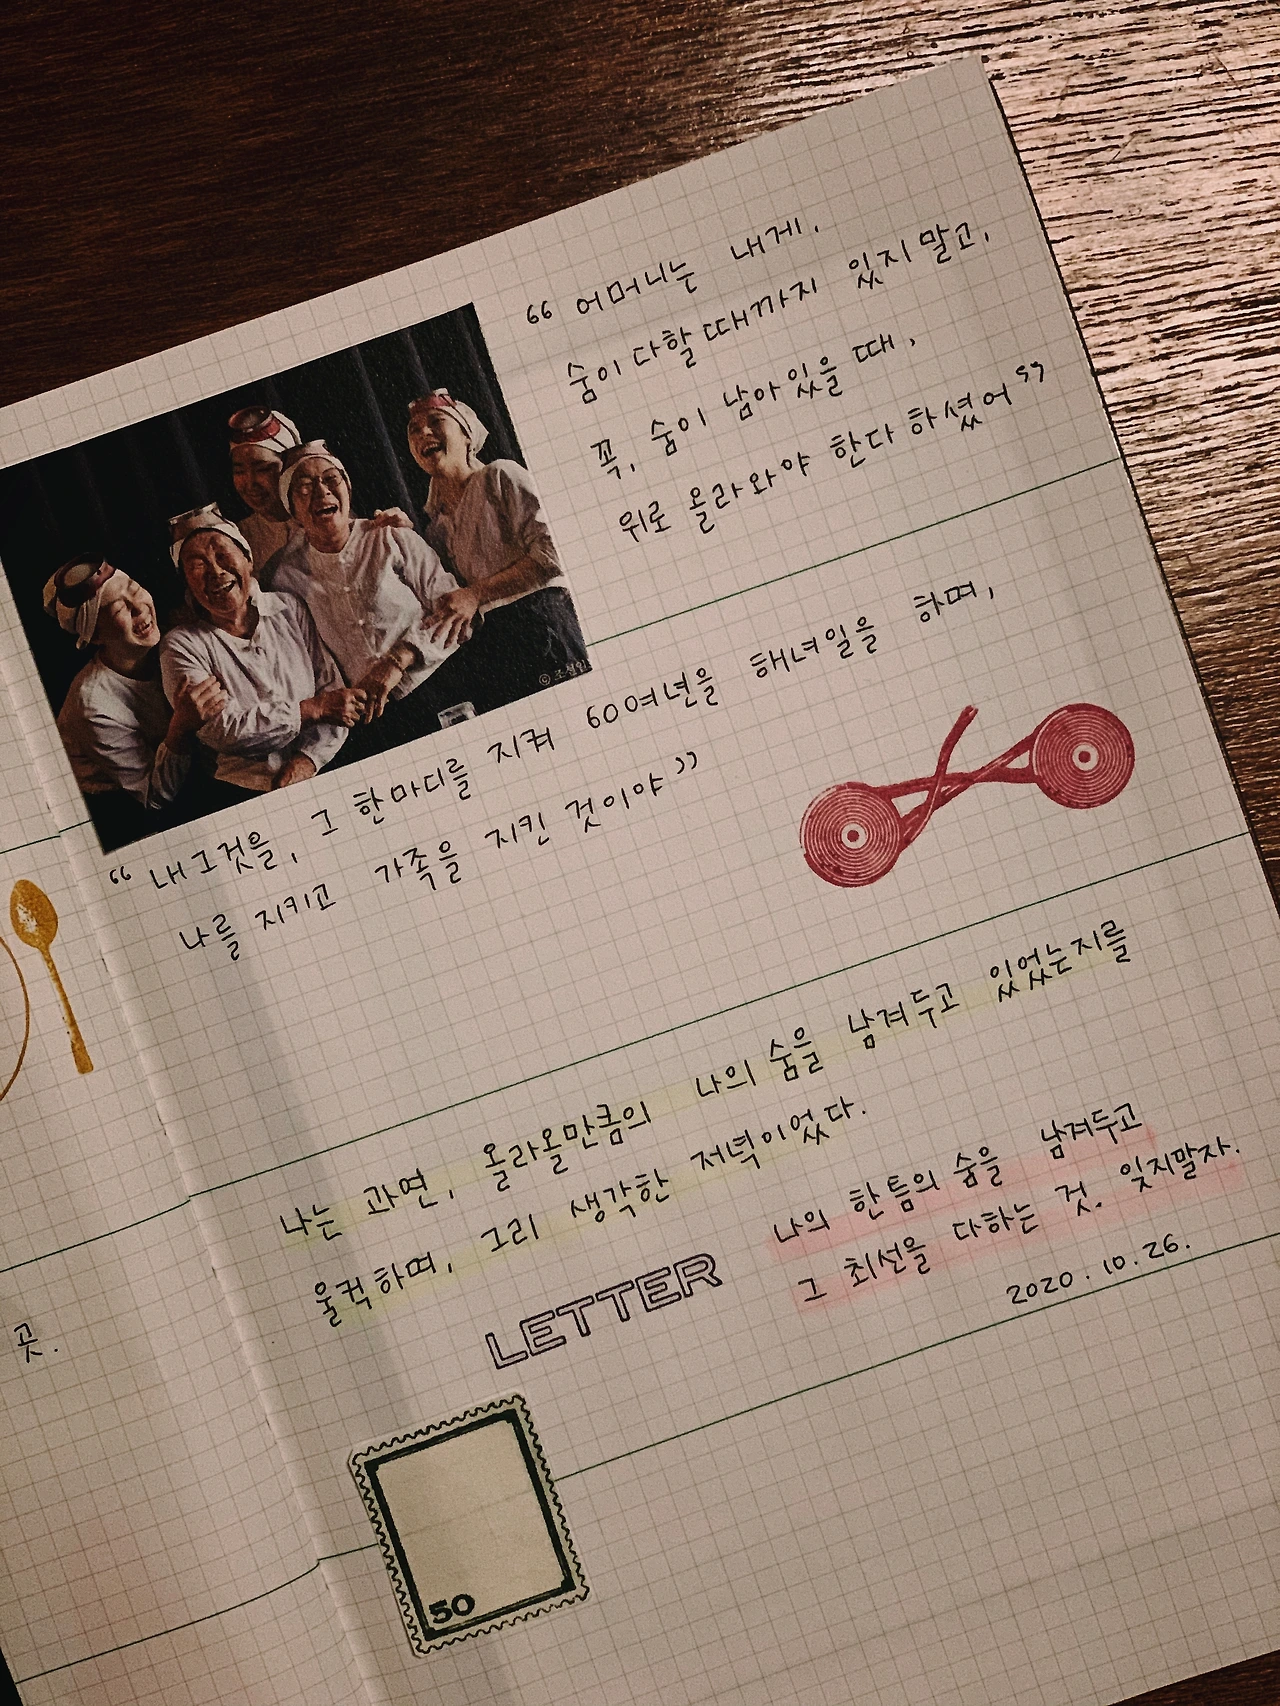 “ 어머니는 내게,
숨이 다할 때까지 있지 말고,
꼭, 숨이 남아있을 때,
위로 올라와야 한다 하셨어 ”
© 조성인
“ 내 그것을, 그 한마디를 지켜 60여년을 해녀일을 하며,
나를 지키고 가족을 지킨 것이야 ”
나는 과연, 올라올만큼의 나의 숨을 남겨두고 있었는지를
울컥하며, 그리 생각한 저녁이었다.
나의 한 틈의 숨을 남겨두고
그 최선을 다하는 것. 잊지말자.
2020. 10. 26.
LETTER
곳.
50